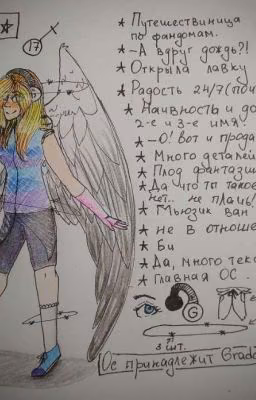 17
★ Путешествиница
по фандомам.
★ -А вдруг дождь?!
★ Открыла лавку
★ Радость 24/7 (по
★ Наивность и до
2-е и 3-е имя.
★ -О! Вот и прода
★ Много деталей
★ Плод фантази
★ Да что ты такое
нет... не плачь!
★ Мьюзик ван
★ не в отноше
★ Би
★ Да, много текс
★ Главная ОС.
G
3 шт.
Ос принадлежит Grado